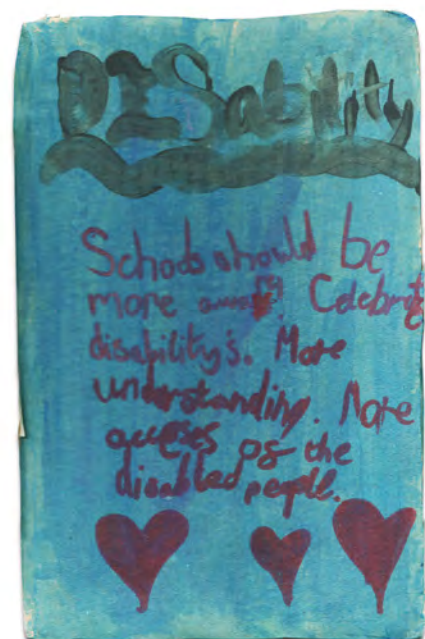 DISability
Schools should be
more Celebrate
disability's. More
understanding. More
accses of the
disabled people.